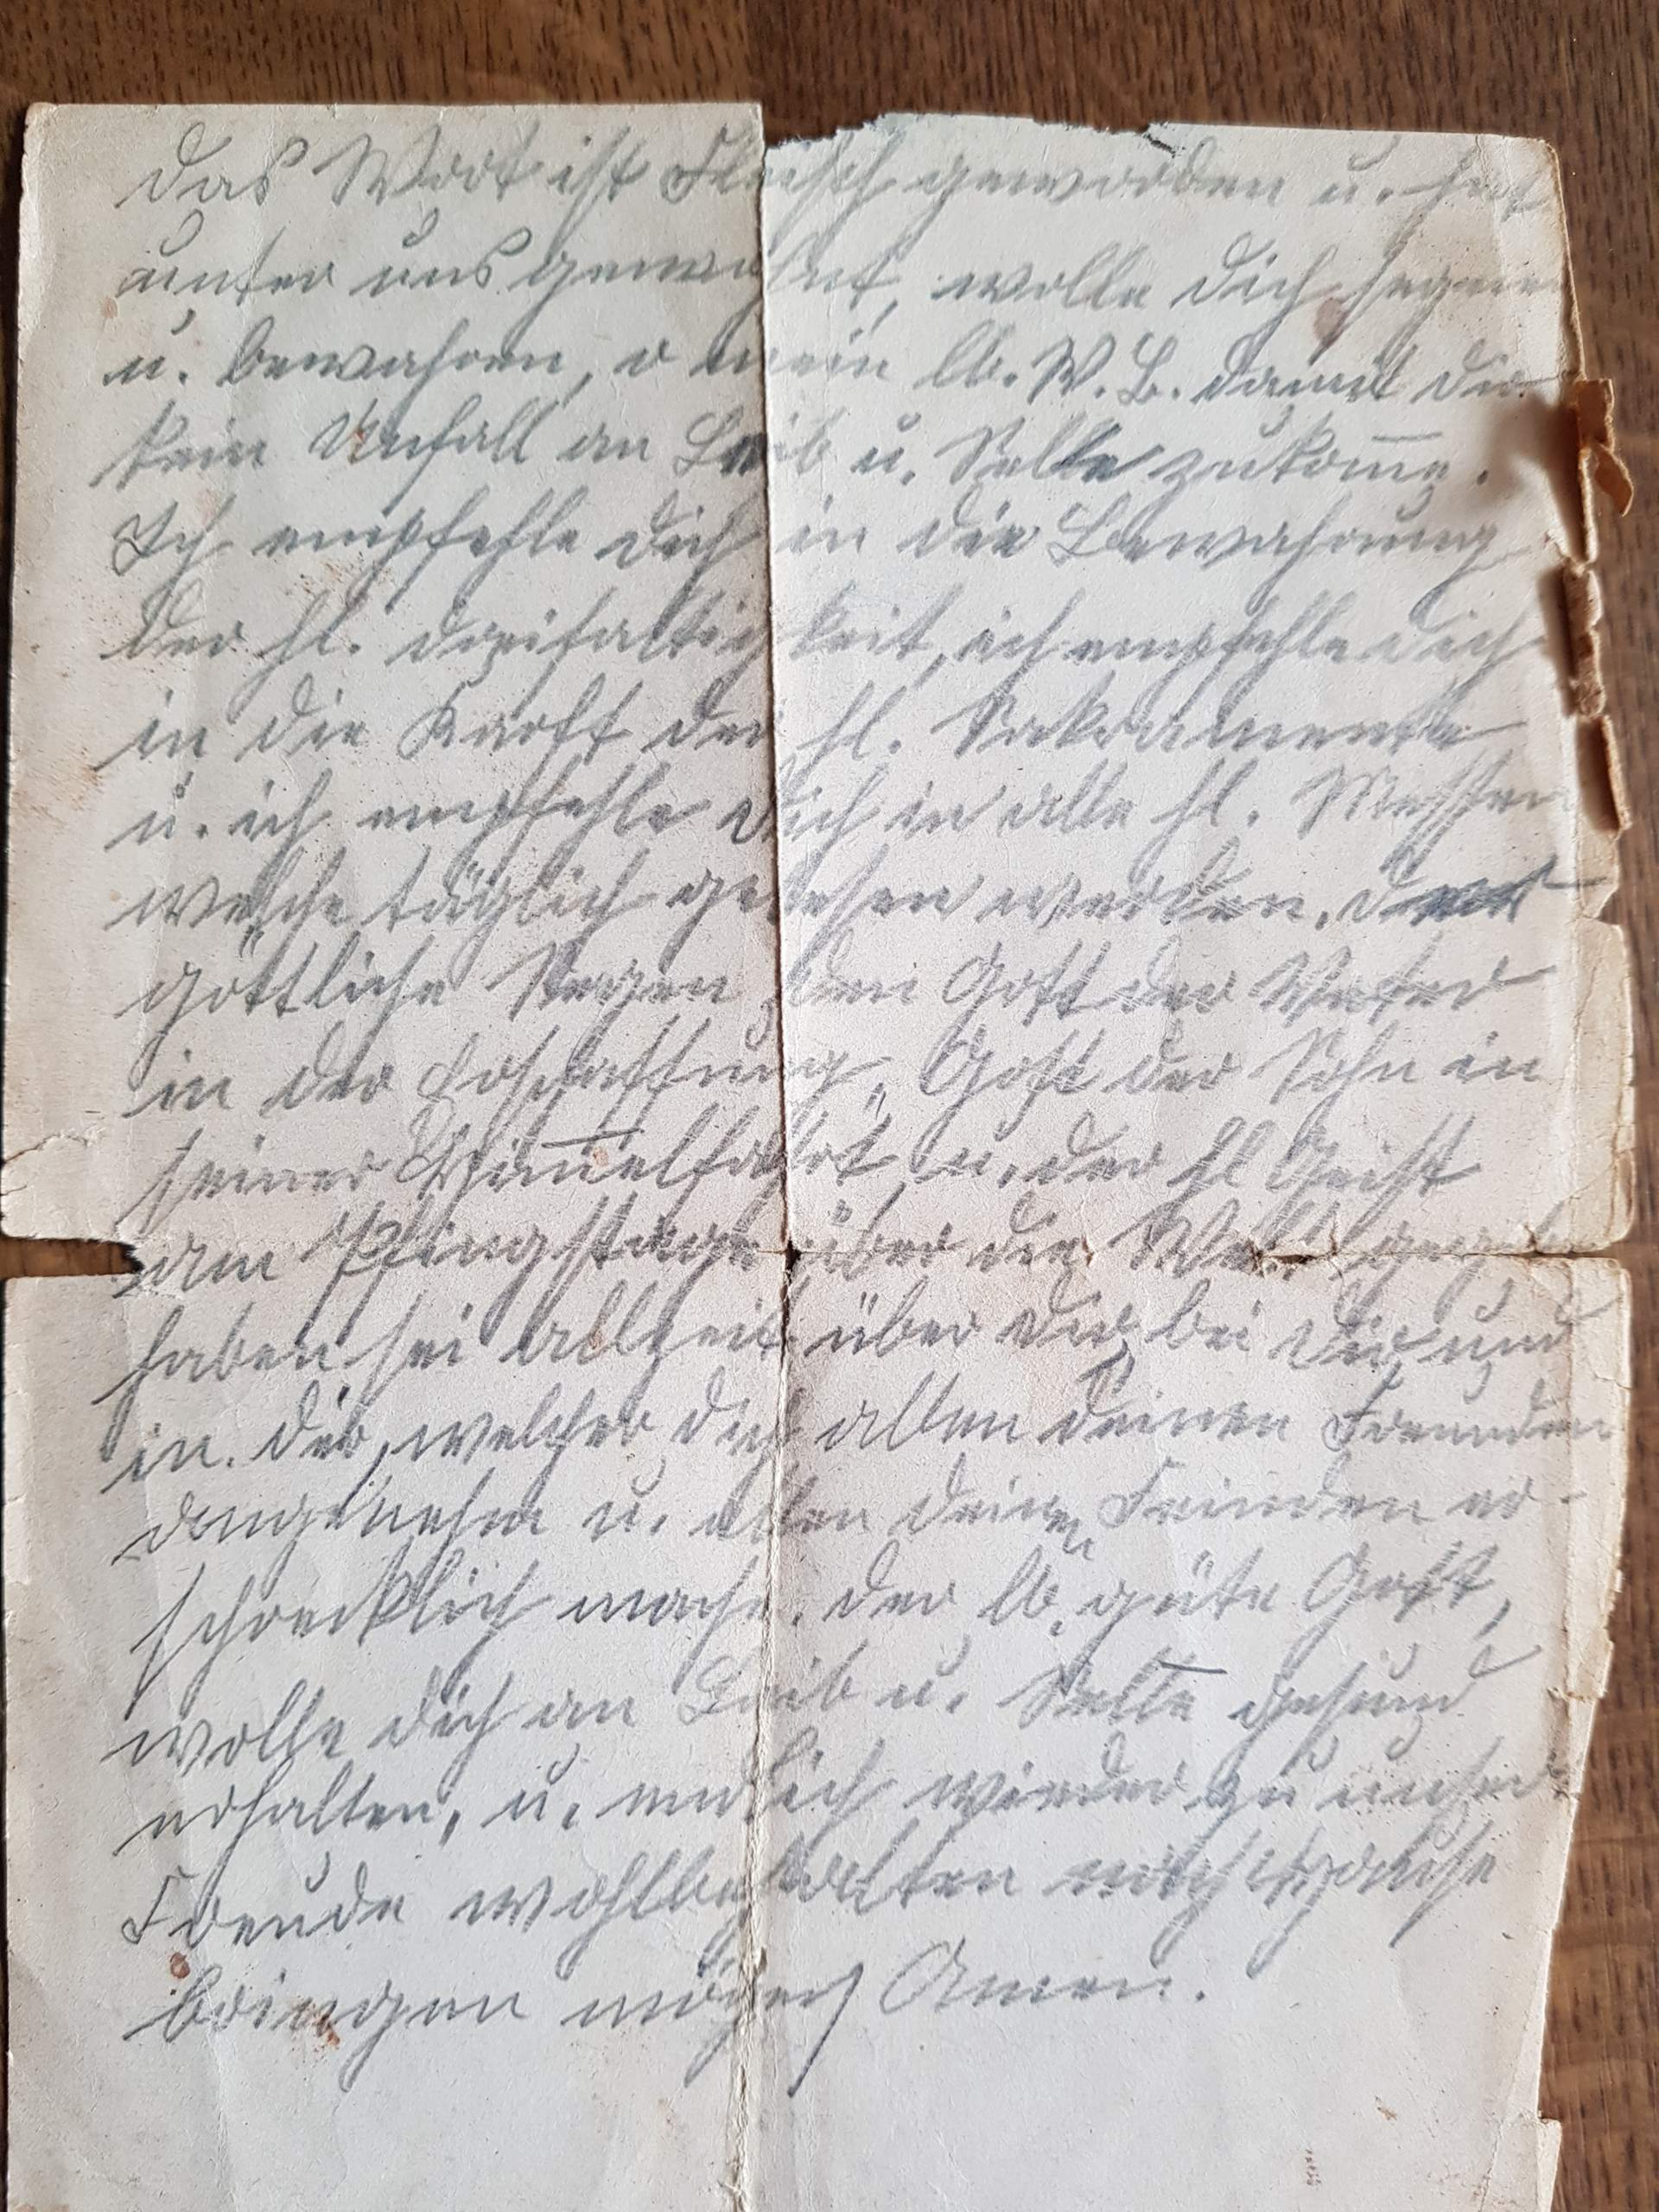 das Wort ist Fleisch geworden u. hat
unter uns gewohnt, wolle dich segnen
u. bewahren, o mein lb. W. B. damit dir
kein Unfall an Leib u. Selle zukom̄e.
Ich empfehle dich in die Bewahrung
der hl. dreifaltigkeit, ich empfehle dich
in die Kraft der hl. Sakramente
u. ich empfehle dich in alle hl. Messen
welche täglich gelesen werden. der
göttliche Segen, den Gott der Vater
in der Erschaffung, Gott der Sohn in
seiner Him̄elfahrt, u. der hl Geist
am Pfingsttage über die Welt
haben sei allzeit über dir, bei dir, und
in. dir, welcher dich allen deinen Freunden
angenehm u. allen deinen Feinden er-
schrecklich mache. der lb. gute Gott,
wolle dich an Leib u. Selle gesund
erhalten, u. endlich wieder zu unser
Freude wohlbehalten nach Hause
bringen mögen Amen.